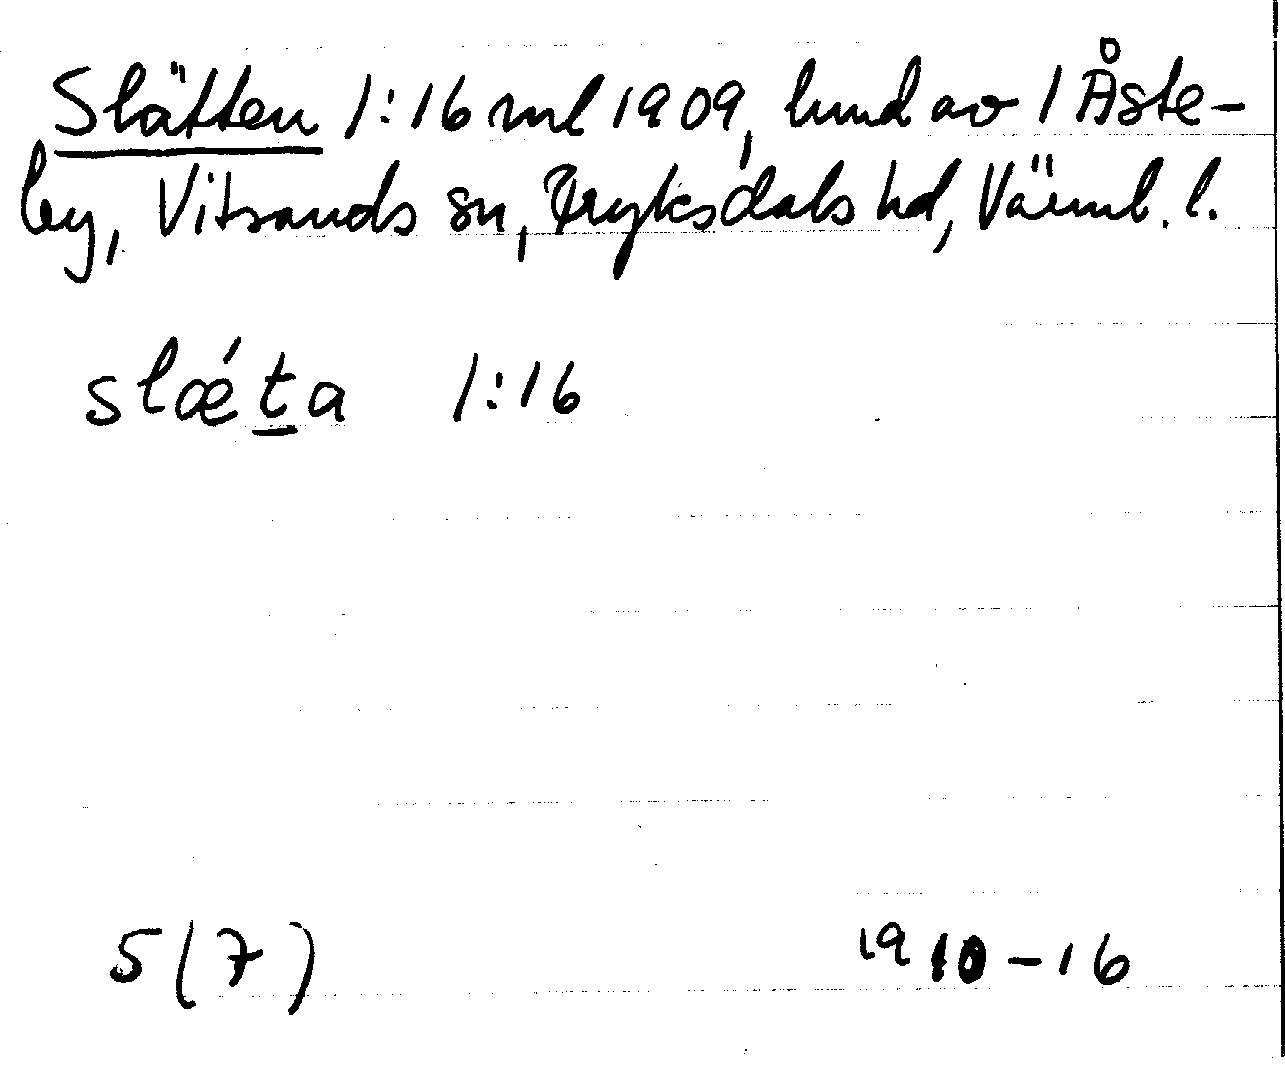 Slätten 1:16 ml 1909, hmd av 1 Åste-
by, Vitsands sn, Fryksdals hd, Värml. l.
slǽt̲a 1:16
5(7) 1910-16